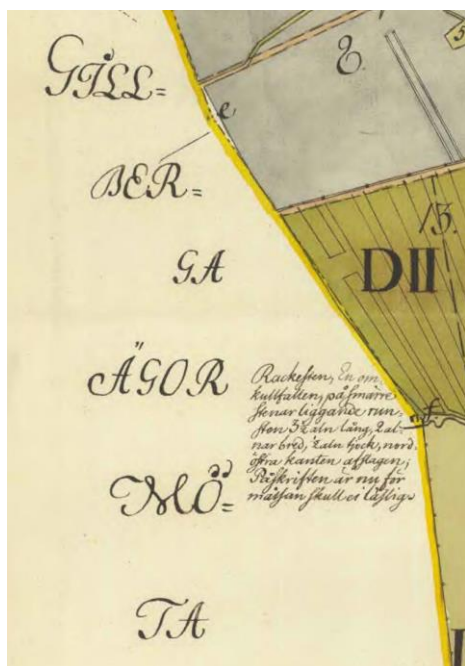 GILL=
BER=
GA
ÄGOR
MÖ=
TA
E.
5
e
13.
DII
f
Rackesten, En om=
kullfallen, på smärre
stenar liggande run=
sten 3½ aln lång, 2 al=
nar bred, ½ aln tjock, nord=
östra kanten afslagen;
Påskriften är nu för
måssan skull ei läslig.